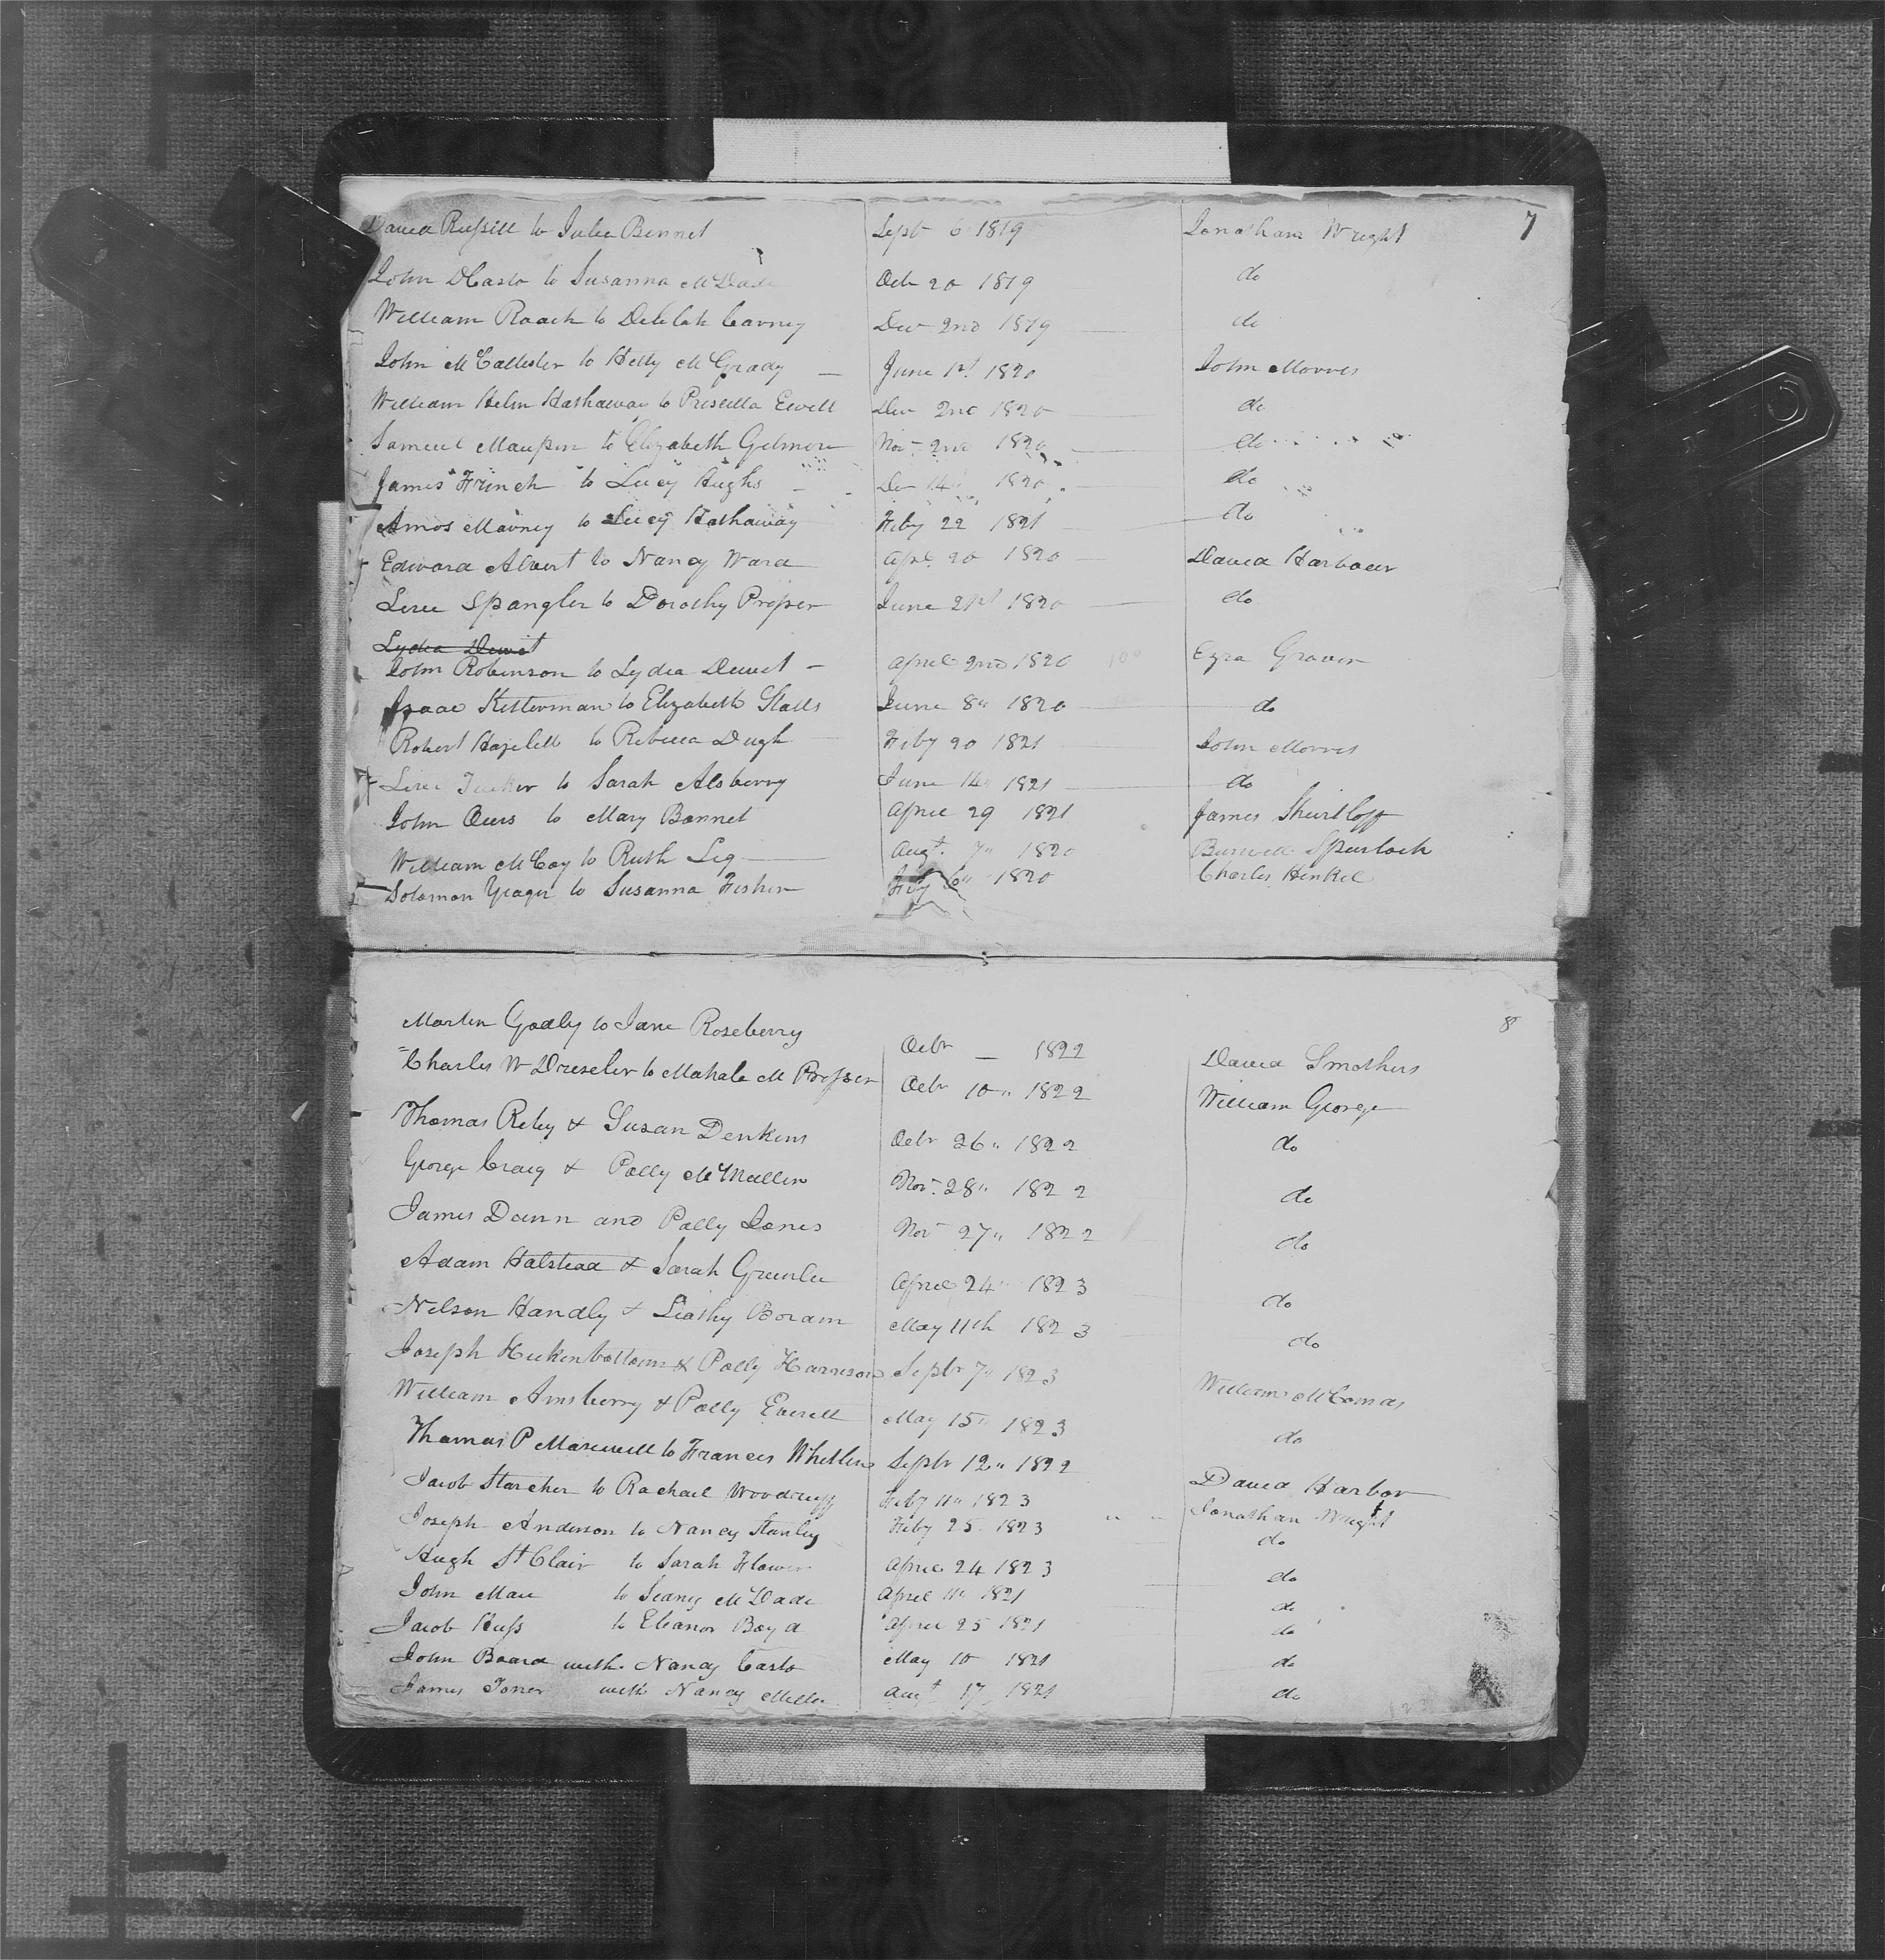 7
David Russill to Julia Bennet Sept 6 1819 Jonathan Wright
John D Casto to Susanna McDade Octr 20 1819 do
William Roach to Delilah Carney Decr 2nd 1819 do
John McCallister to Hetty McGrady — June 1st 1820 John Morris
William Helm Hathaway to Priscilla Ewell Decr 2nd 1820 do
Samuel Maupin to Elizabeth Gilmore Novr 2nd 1820 do
James French to Lucy Hughs Decr 14" 1820 do
Amos Mavney to Lucy Hathaway Feby 22 1821 do
Edward Alvert to Nancy Ward Apl. 20 1820 David Harbour
Levi Spangler to Dorothy Prosser June 21st 1820 do
Lydia Dewit
John Robinson to Lydia Dewit — April 2nd 1820 Ezra Graver
Isaac Ketterman to Elizabeth Stalls June 8" 1820 do
Robert Hazlett to Rebecca Dugh Feby 20 1821 John Morris
Levi Tucker to Sarah Alsberry June 14" 1821 do
John Ours to Mary Bonnet April 29 1821 James Shurtloff
William McCoy to Ruth Leg Augt. 7" 1820 Burwell Spurlock
Solomon Yeager to Susanna Fisher Feby 6" 1820 Charles Hinkel
8
Martin Godly to Jane Roseberry Octr — 1822 David Smothers
Charles W Dreseler to Mahala M Prosser Octr 10" 1822 William George
Thomas Reby & Susan Denkins Octr 26" 1822 do
George Craig & Polly McMullin Novr. 28" 1822 do
James Dunn and Polly Jones Novr 27" 1822 do
Adam Halstead & Sarah Greenlee April 24" 1823 do
Nelson Handly & Leathy Boram May 11th 1823 do
Joseph Huckenbottom & Polly Harrison Septr 7" 1823 William McComas
William Amsberry & Polly Everell May 15" 1823 do
Thomas P Maxwell to Frances Whitten Septr 12" 1822 David Harbor
Jacob Starcher to Rachael Woodruff Feby 11" 1823 " " Jonathan Wright
Joseph Anderson to Nancy Stanley Feby 25 1823 do
Hugh St Clair to Sarah Flower April 24 1823 do
John Mace to Jeany McDade April 11" 1821 do
Jacob Huss to Eleanor Boyd April 25 1821 do
John Board with Nancy Casto May 10 1821 do
James Toner with Nancy Miller Augt 17 1821 do